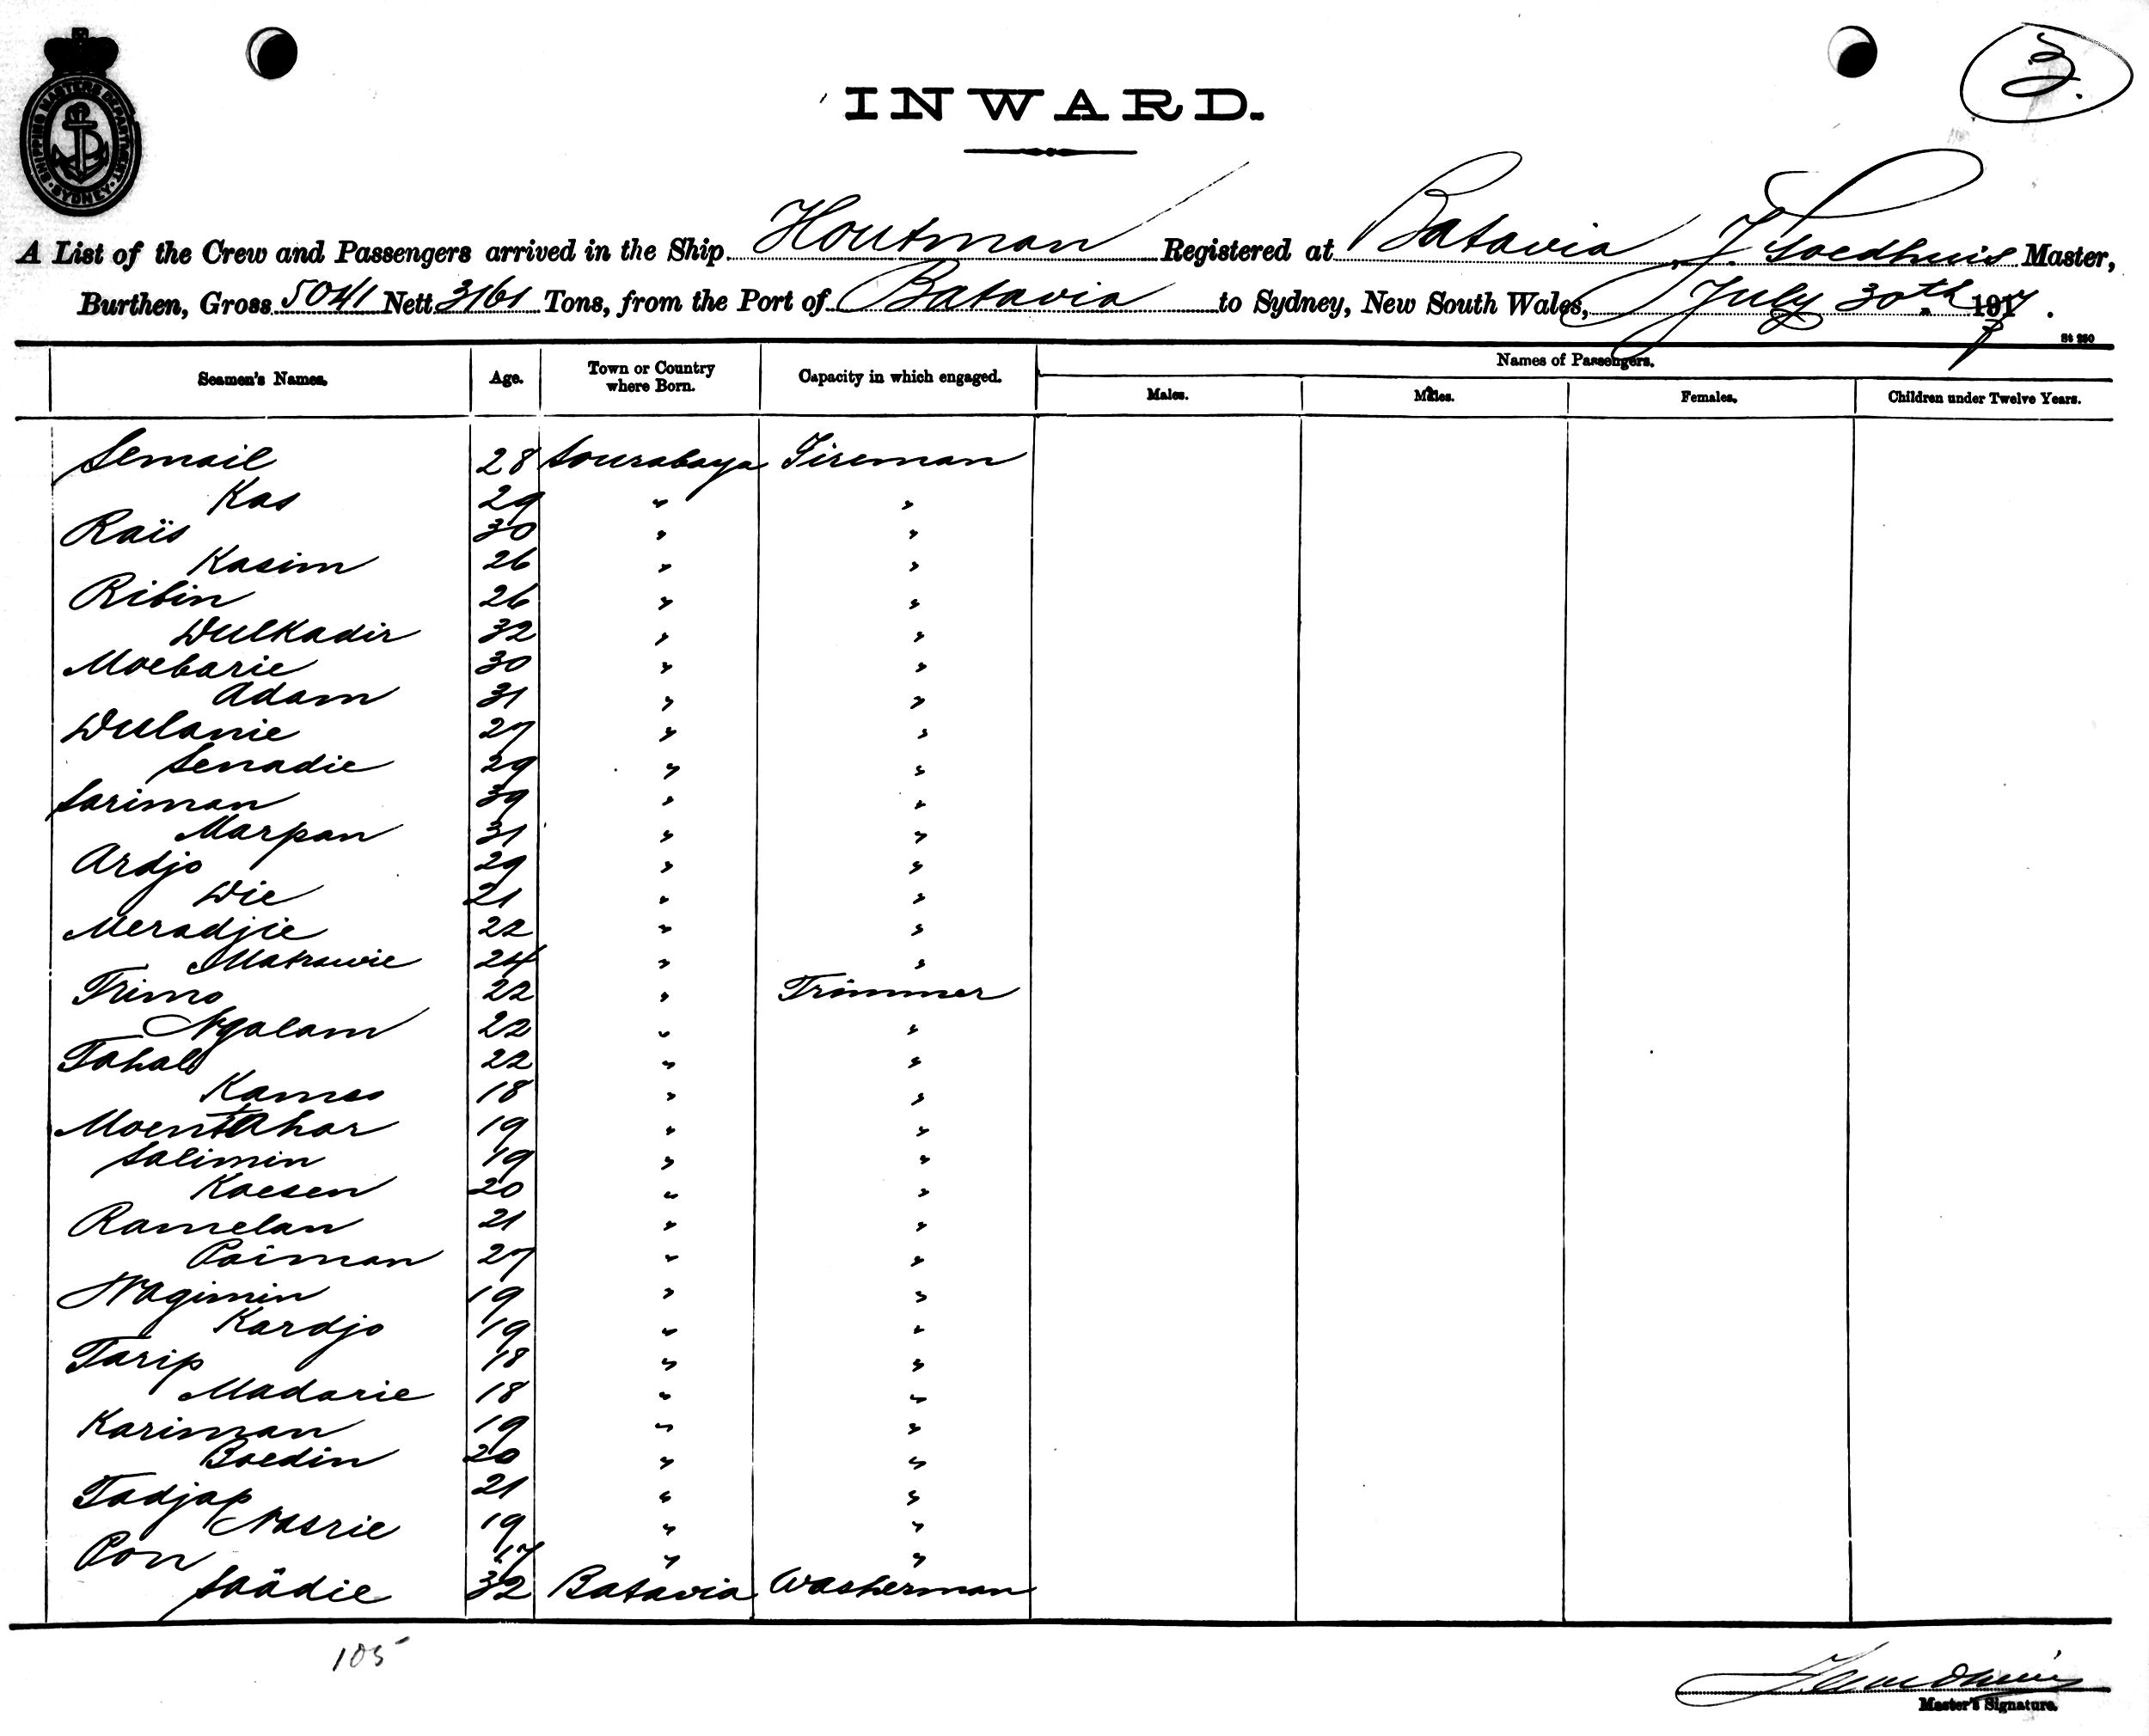 SHIPPING MASTERS DEPARTMENT SYDNEY
3.
INWARD.
A List of the Crew and Passengers arrived in the Ship Houtman Registered at Batavia, J. Master,
Burthen, Gross 5041 Nett 3161 Tons, from the Port of Batavia to Sydney, New South Wales, July 30th 1917.
St 250
Seamen's Names. Age. Town or Country where Born. Capacity in which engaged. Names of Passengers.
Males. Males. Females. Children under Twelve Years.
Semail 28 Sourabaya Fireman
Kas 29 " "
Raïs 30 " "
Kasim 26 " "
Ribin 26 " "
Dulkadir 32 " "
Moebarie 30 " "
Adam 31 " "
Dulanie 27 " "
Senadie 29 " "
Sariman 39 " "
Marpan 31 " "
Ardjo 29 " "
Die 21 " "
Meradjie 22 " "
Matrawie 24 " "
Trimo 22 " Trimmer
Ngalam 22 " "
Tahal 22 " "
Kamso 18 " "
Moentahar 19 " "
Salimin 19 " "
Kaesen 20 " "
Ramelan 21 " "
Paiman 27 " "
Wagimin 19 " "
Kardjo 19 " "
Tarip 18 " "
Madarie 18 " "
Kariman 19 " "
Boedin 20 " "
Tadjap 21 " "
Nasrie 19 " "
Pon 17 " "
Saädie 32 Batavia Washerman
105
Master's Signature.